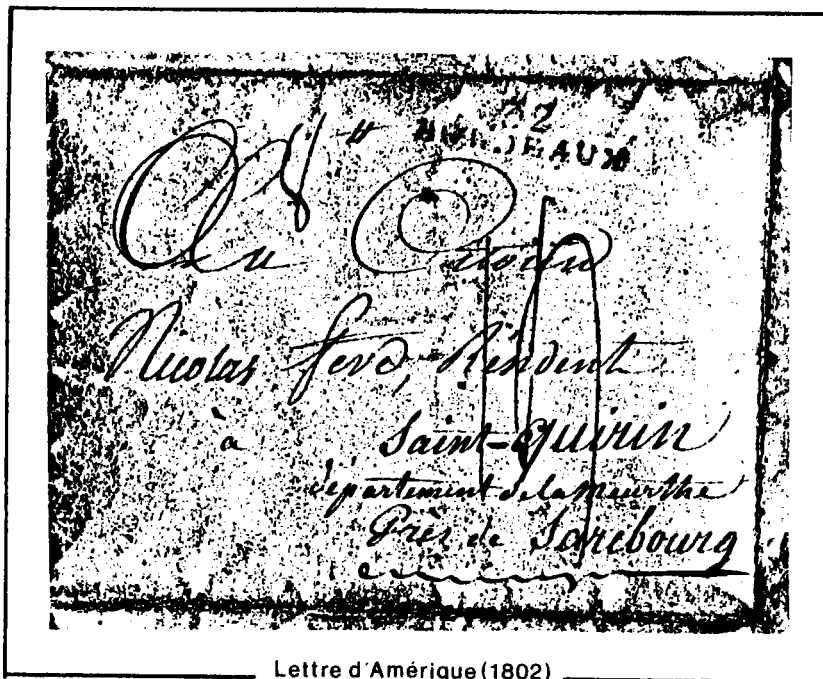 32
BORDEAUX
Au Citoyen
Nicolas ferd, Résident
à Saint-quirin
département de la meurthe
Près de Sarebourg
Lettre d'Amérique (1802)